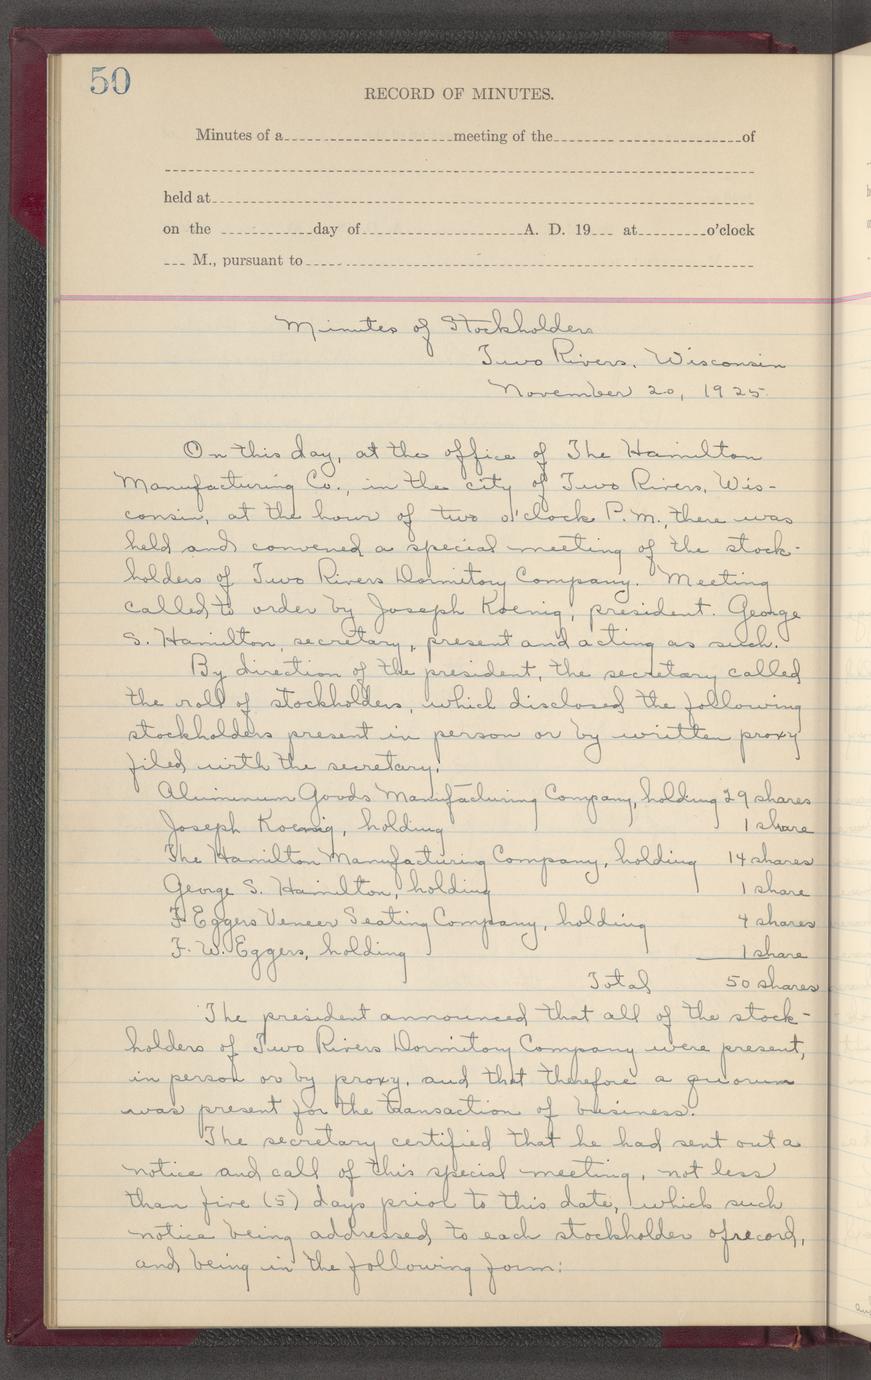 50
RECORD OF MINUTES.
Minutes of a meeting of the of
held at
on the day of A. D. 19 at o'clock
M., pursuant to
Minutes of Stockholders
Two Rivers, Wisconsin
November 20, 1925.
On this day, at the office of The Hamilton
Manufacturing Co., in the city of Two Rivers, Wis-
consin, at the hour of two o'clock P.M., there was
held and convened a special meeting of the stock-
holders of Two Rivers Dormitory Company. Meeting
called to order by Joseph Koenig, president. George
S. Hamilton, secretary, present and acting as such.
By direction of the president, the secretary called
the roll of stockholders, which disclosed the following
stockholders present in person or by written proxy
filed with the secretary.
Aluminum Goods Manufacturing Company, holding 29 shares
Joseph Koenig, holding 1 share
The Hamilton Manufacturing Company, holding 14 shares
George S. Hamilton, holding 1 share
F. Eggers Veneer Seating Company, holding 4 shares
F. W. Eggers, holding 1 share
Total 50 shares
The president announced that all of the stock-
holders of Two Rivers Dormitory Company were present,
in person or by proxy, and that therefore a quorum
was present for the transaction of business.
The secretary certified that he had sent out a
notice and call of this special meeting, not less
than five (5) days prior to this date, which such
notice being addressed to each stockholder of record,
and being in the following form: